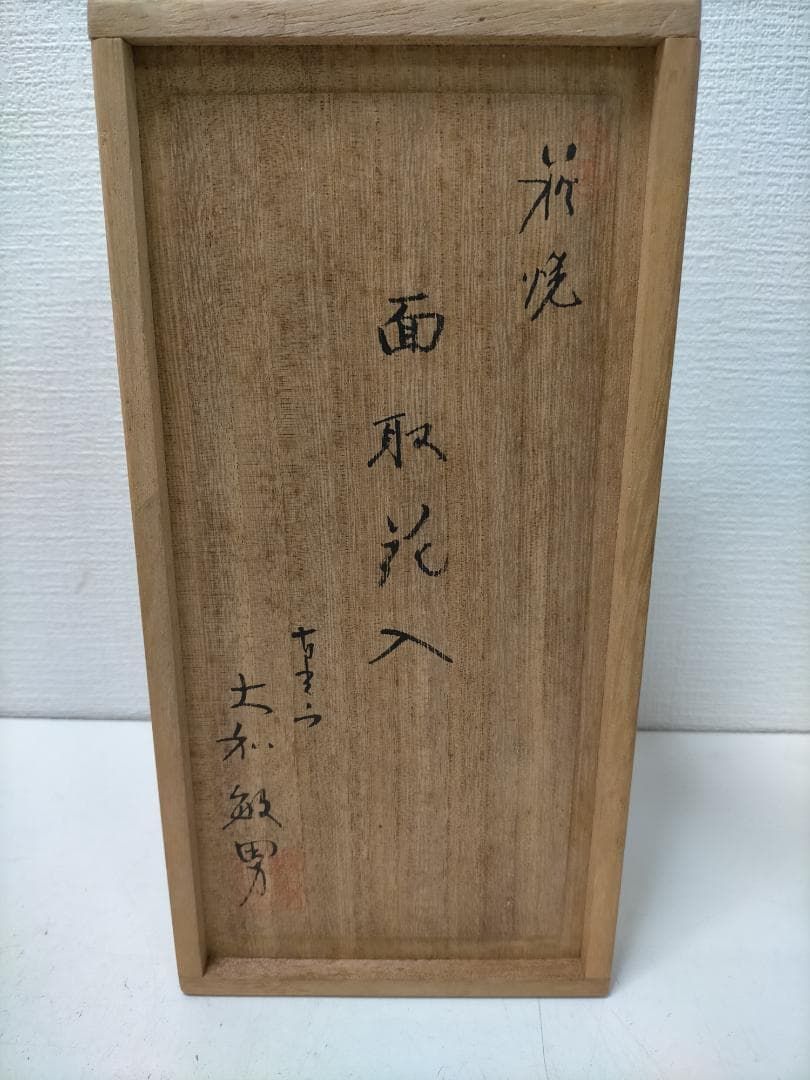 萩焼
面取花入
大和敏男